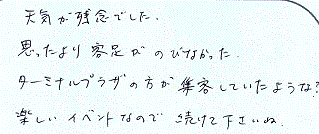 天気が残念でした.
思ったより客足がのびなかった.
ターミナルプラザの方が集客していたような?
楽しいイベントなので続けて下さいね.